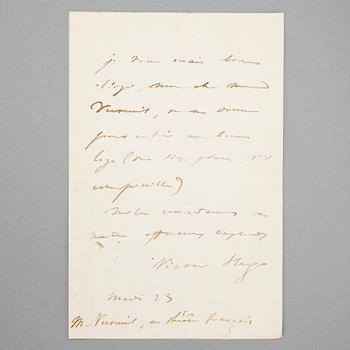 je vous serais bien
obligé, mon cher monsieur
Verteuil, de me donner
pour ce soir une bonne
loge (de six places, s'il
est possible).
Mille
affectueux empressés
Victor Hugo
Mardi 23
M. Verteuil, au théâtre français